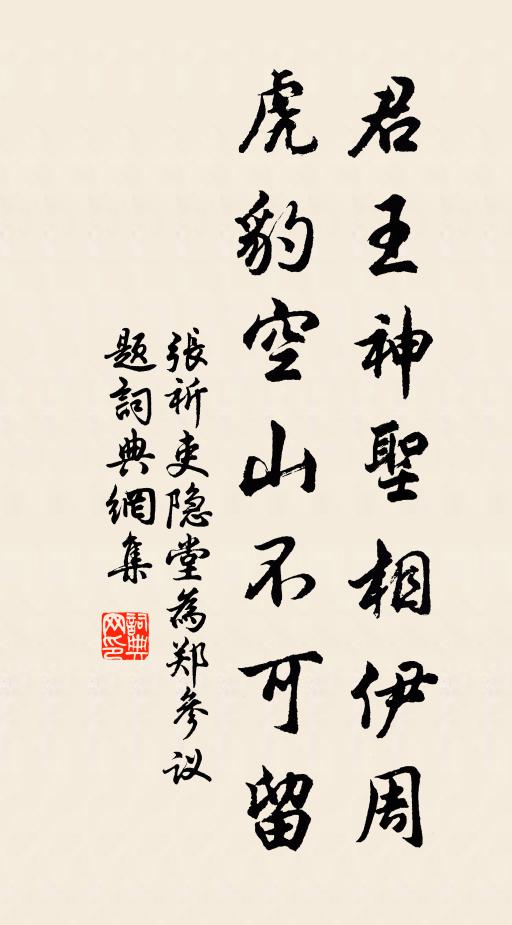 君王神聖相伊周
虎豹空山不可留
張祈吏隐堂為郑參议
题詞典網集
詞典网印